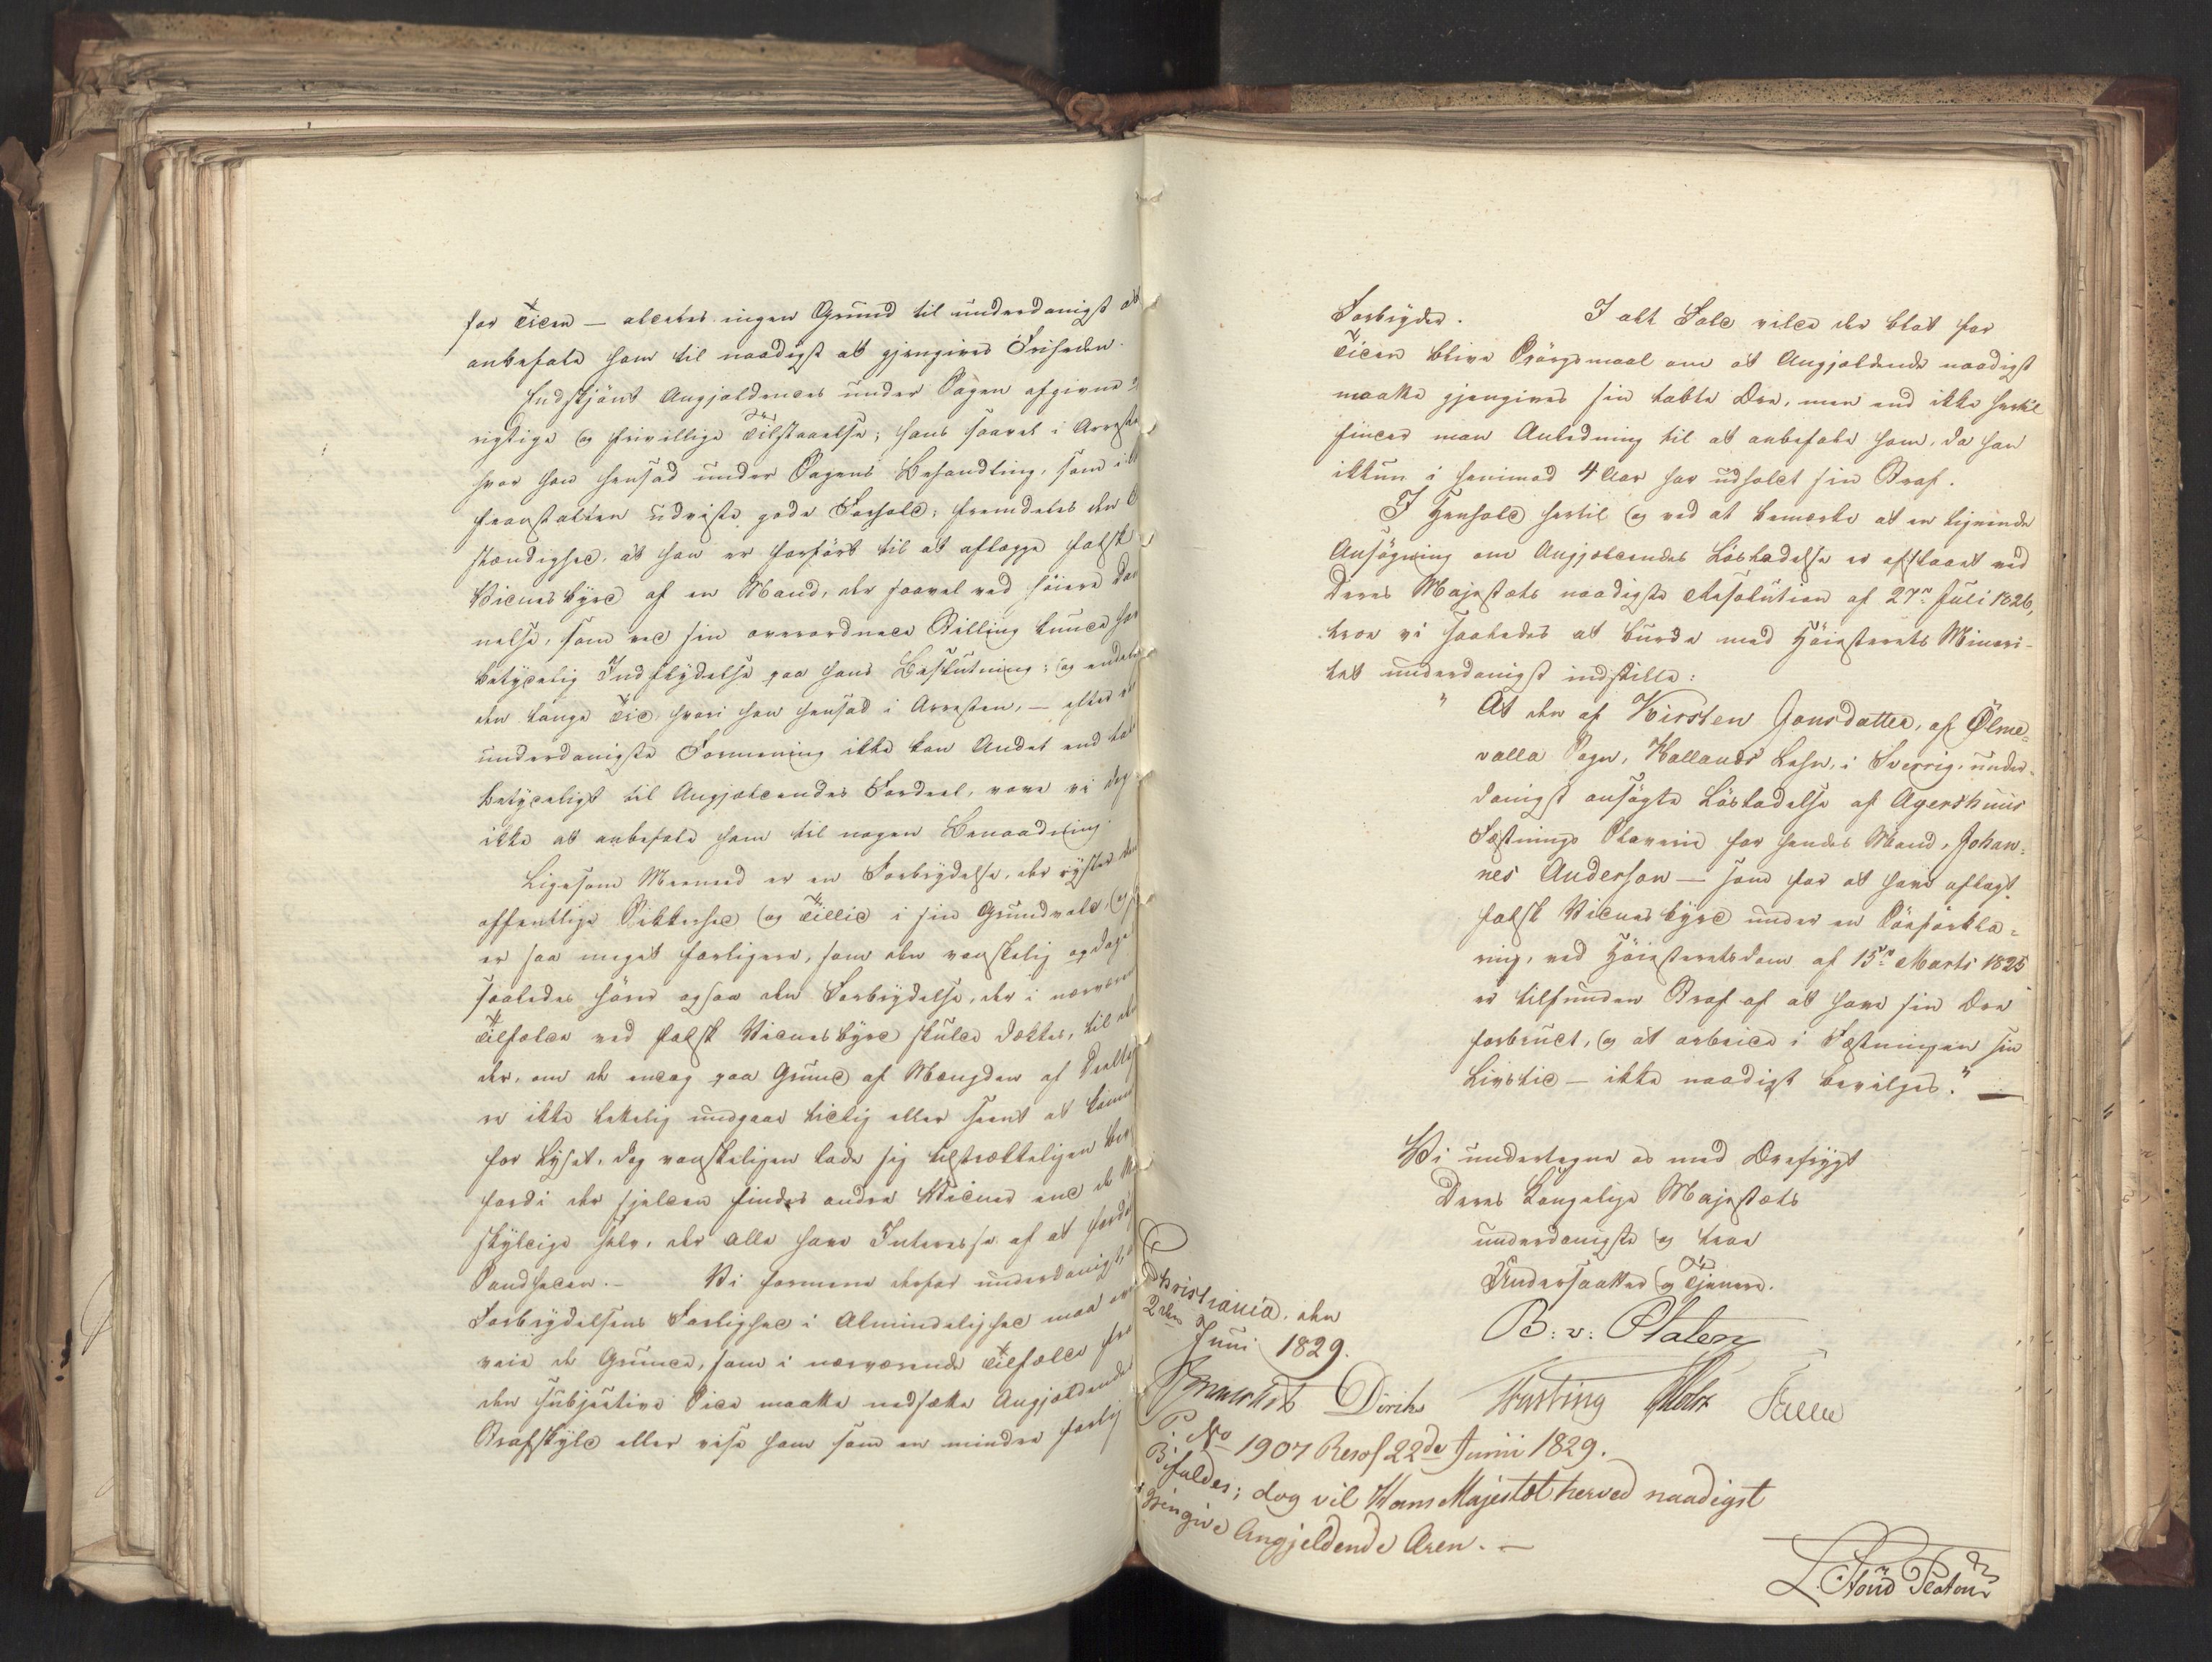 for Tiden — aldeles ingen Grund til underdanigst at
anbefale ham til naadigst at gjengives Friheden.
Endskjönt Angjældendes under Sagen afgivne
rigtige og frivillige Tilstaaelse; hans saavel i Arresten
hvor han hensad under Sagens Behandling, som i
Straanstalten udviste gode Forhold; fremdeles den
stændighed, at han er forført til at aflægge falsk
Vidnesbyrd af en Mand, der saavel ved höiere Dan
nelse, som ved sin overordnede Stilling kunde have
betydelig Indflydelse paa hans Beslutning; og endelig
den lange Tid, hvori han hensad i Arresten, — efter
underdanigste Formening ikke kan Andet end tale
betydeligt til Angjældendes Fordeel, vove vi dog
ikke at anbefale ham til nogen Benaadning.
Ligesom Meeneed er en Forbrydelse, der ryster den
offentlige Sikkerhed og Tillid i sin Grundvold, og
er saa meget farligere, som den vanskelig opdages
saaledes hörer ogsaa den Forbrydelse, der i nærværende
Tilfælde ved falsk Vidnesbyrd skulde dækkes, til
der, om de endog paa Grund af Mængden af Deeltag
er ikke lettelig undgaae tidlig eller seent at komme
for Lyset, dog vanskeligen lade sig tilstrækkeligen
fordi der sjelden findes andre Vidner end de
skyldige selv, der alle have Interesse af at fordölge
Sandheden. — Vi formene derfor underdanigst,
Forbrydelsens Farlighed i Almindelighed maa
veie de Grunde, som i nærværende Tilfælde fra
den subjective Side maatte nedsætte Angjældendes
Strafskyld eller vise ham som en mindre farlig
Forbryder. I alt Fald vilde der blot for
Tiden blive Spörgsmaal om at Angjældende naadigst
maatte gjengives sin tabte Ære, men end ikke hertil
finder man Anledning til at anbefale ham, da han
ikkun i henimod 4 Aar har udholdt sin Straf.
I Henhold hertil og ved at bemærke at en lignende
Ansögning om Angjældendes Lösladelse er afslaaet ved
Deres Majestæts naadigste Resolution af 27de Juli 1826,
troe vi saaledes at burde med Höiesterets Minori-
tet underdanigst indstille:
"At den af Kirsten Jonsdatter, af Ölme-
valla Sogn, Hallands Lehn, i Sverrig, under-
danigst ansögte Lösladelse af Agershuus
Fæstnings Slaverie for hendes Mand, Johan-
nes Anderson — som for at have aflagt
falsk Vidnesbyrd under en Söeforkla-
ring, ved Höiesteretsdom af 15de Marts 1825
er tilfunden Straf af at have sin Ære
forbrudt, og at arbeide i Fæstningen sin
Livstid — ikke naadigst bevilges." —
Vi undertegne os med Ærefrygt
Deres Kongelige Majestæts
underdanigste og troe
Undersaatter og Tjenere.
Christiania, den
2den Juni 1829.
B: v: Platen
Diriks Fasting Holst
P. No 1907 Resol 22de Junii 1829.
Bifaldes; dog vil Hans Majestæt herved naadigst
gjengive Angjeldende Æren. —